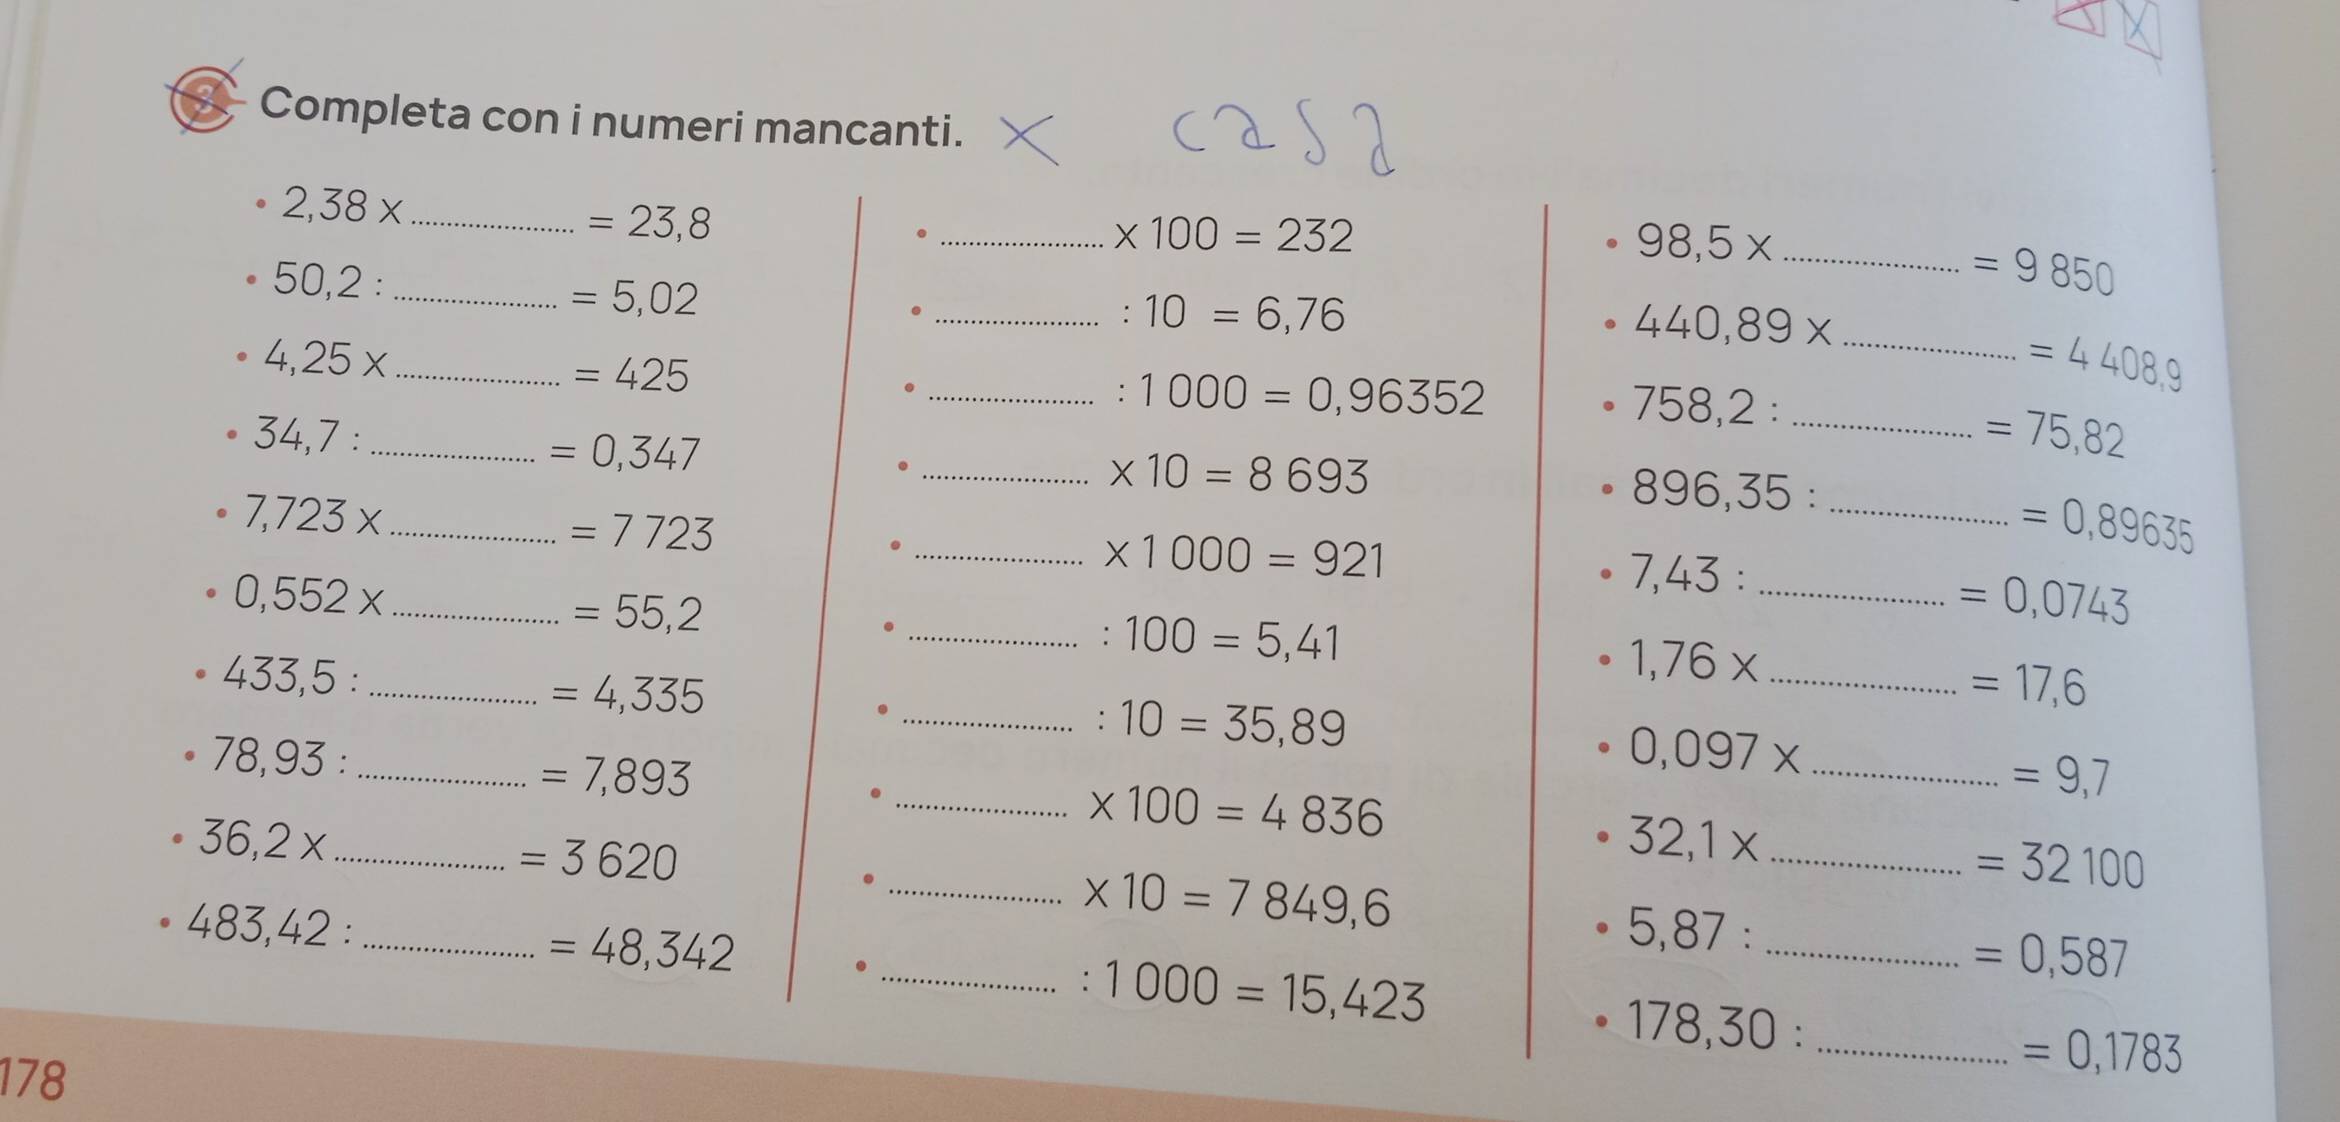 3 Completa con i numeri mancanti. x casa
• 2,38 x .................... = 23,8
• 50,2 : .................... = 5,02
• 4,25 x .................... = 425
• 34,7 : .................... = 0,347
• 7,723 x .................... = 7 723
• 0,552 x .................... = 55,2
• 433,5 : .................... = 4,335
• 78,93 : .................... = 7,893
• 36,2 x .................... = 3 620
• 483,42 : .................... = 48,342
• .................... x 100 = 232
• .................... : 10 = 6,76
• .................... : 1 000 = 0,96352
• .................... x 10 = 8 693
• .................... x 1 000 = 921
• .................... : 100 = 5,41
• .................... : 10 = 35,89
• .................... x 100 = 4 836
• .................... x 10 = 7 849,6
• .................... : 1 000 = 15,423
• 98,5 x .................... = 9 850
• 440,89 x .................... = 4 408,9
• 758,2 : .................... = 75,82
• 896,35 : .................... = 0,89635
• 7,43 : .................... = 0,0743
• 1,76 x .................... = 17,6
• 0,097 x .................... = 9,7
• 32,1 x .................... = 32 100
• 5,87 : .................... = 0,587
• 178,30 : .................... = 0,1783
178